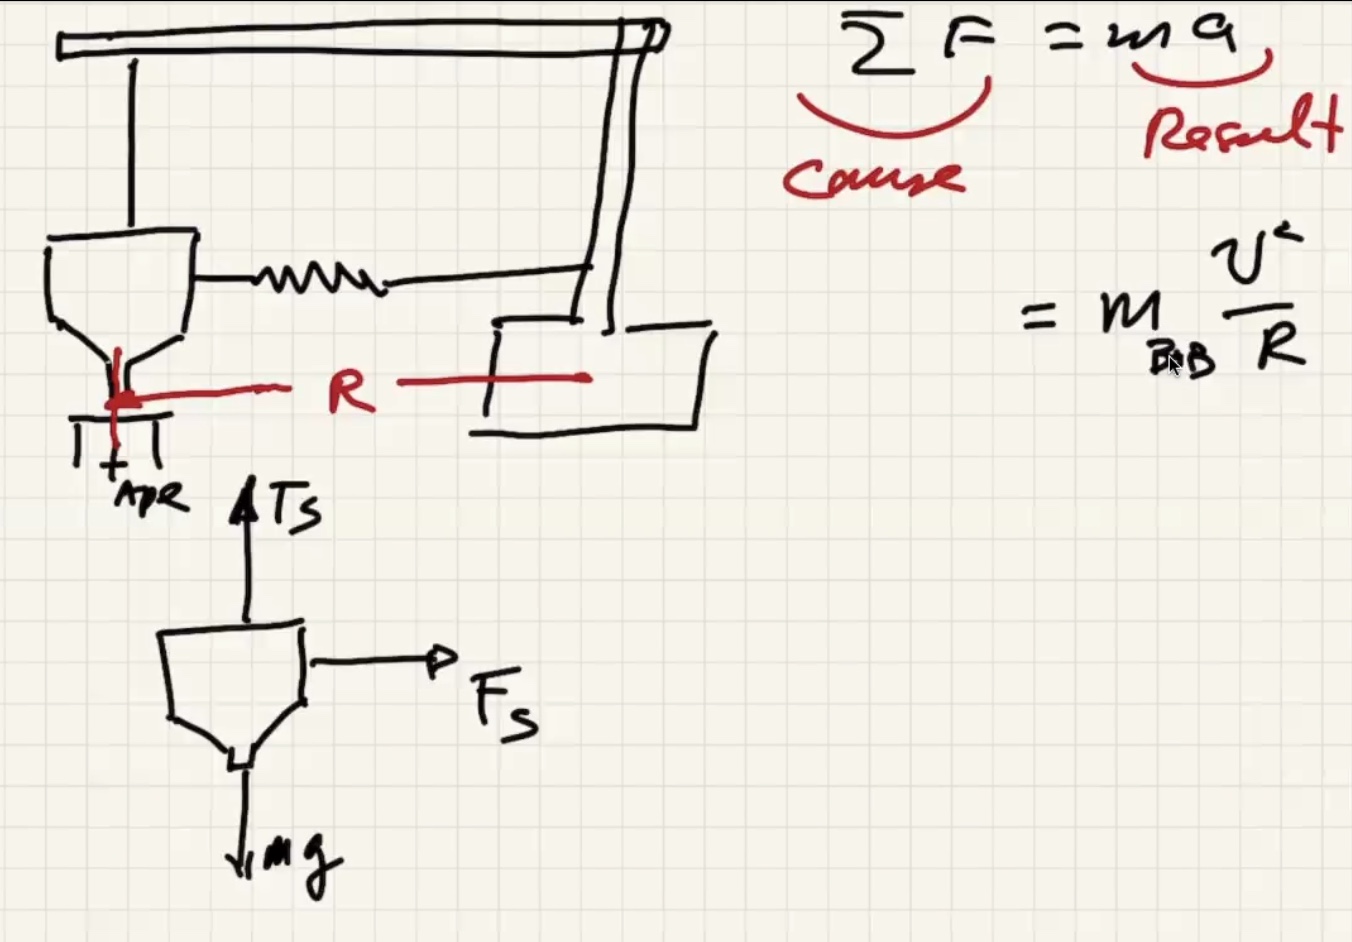 Σ F = ma
Cause
Result
= m BOB v² / R
R
APR
Ts
Fs
mg